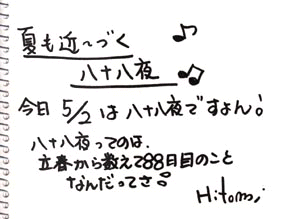 夏も近〜づく
八十八夜
今日5/2は八十八夜ですよん!
八十八夜ってのは、
立春から数えて88日目のこと
なんだってさ。
Hitomi